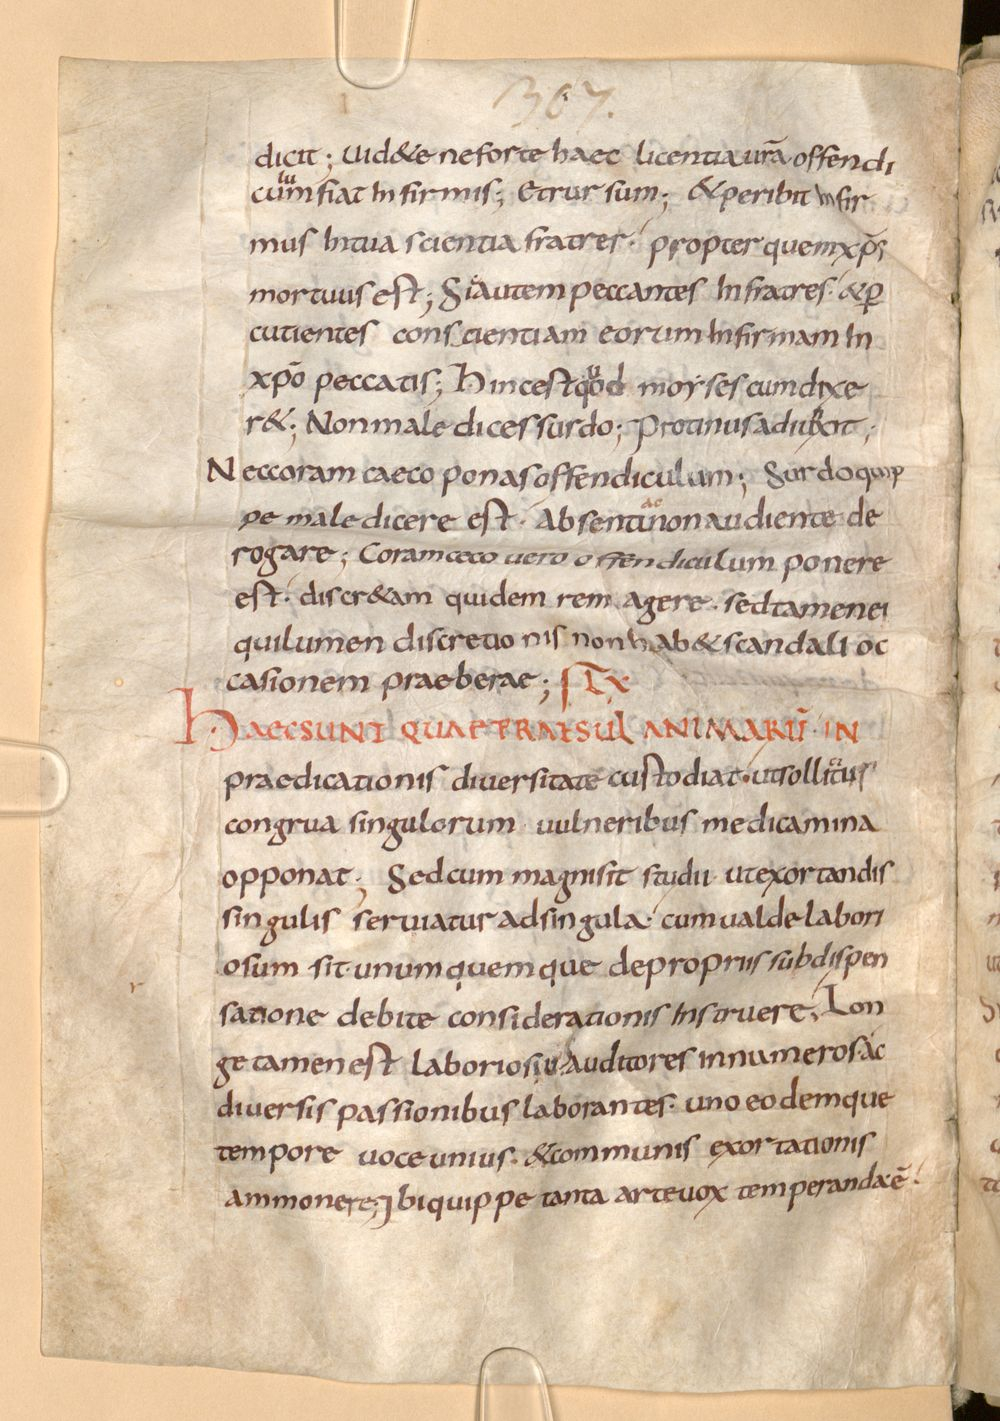 307.
dicit; uid&e ne forte haec licentia urā offendi
culum fiat Infirmis; Et rursum; & peribit Infir
mus In tua scientia fratres· propter quem xp̄s
mortuus est; Sic autem peccantes In fratres· & ꝑ
cutientes conscientiam eorum Infirmam In
xpō peccatis; Hinc est quod moyses cum dixe
r&; Non male dices surdo; Protinus adiunxit;
Nec coram caeco ponas offendiculum; Surdo quip
pe male dicere est· Absenti ac non audiente de
rogare; Coram ceco uero offendiculum ponere
est· discr&am quidem rem agere· sed tamen ei
qui lumen discretionis non hab& scandali oc
casionem praeberae;
Haec sunt quae praesul animarū· in
praedicationis diuersitate custodiat· ut sollicitus
congrua singulorum uulneribus medicamina
opponat; Sed cum magni sit studii ut exortandis
singulis seruiatur ad singula· cum ualde labori
osum sit· unum quemque de propriis sub dispen
satione debite considerationis Instruere; Lon
ge tamen est laboriosius auditores innumeros ac
diuersis passionibus laborantes· uno eodemque
tempore uoce unius· & communis exortationis
ammonere; Ibi quippe tanta arte uox temperanda ē·